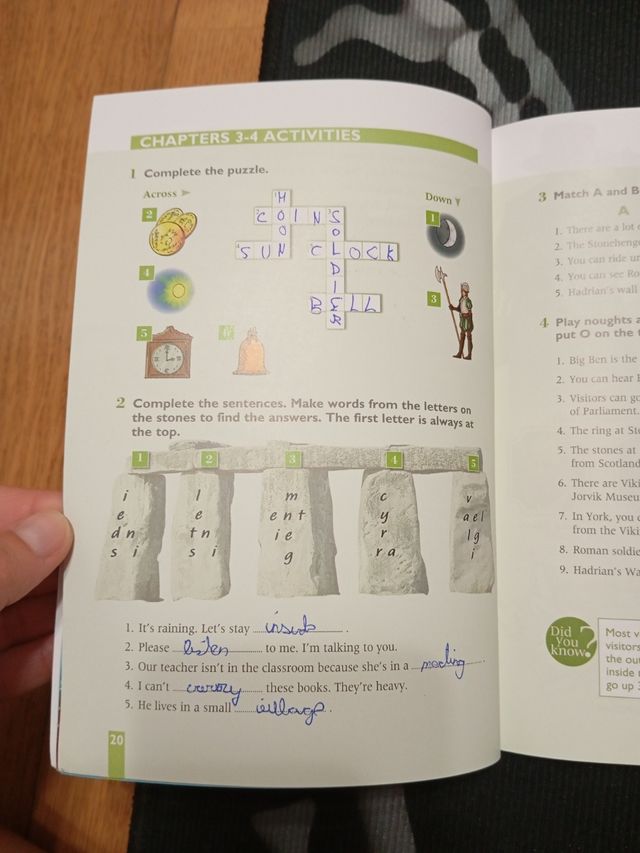 CHAPTERS 3-4 ACTIVITIES
1 Complete the puzzle.
Across
Down
2
1
4
3
5
6
H
COINS
O
O
O
SUN
CLOCK
D
I
BELL
R
2 Complete the sentences. Make words from the letters on
the stones to find the answers. The first letter is always at
the top.
1 2 3 4 5
i l m c v
e e e n t y a e l
d n t n i e r l g
s i s i g r a i
1. It's raining. Let's stay inside.
2. Please listen to me. I'm talking to you.
3. Our teacher isn't in the classroom because she's in a meeting.
4. I can't carry these books. They're heavy.
5. He lives in a small village.
20
3 Match A and B
A
1. There are a lot
2. The Stonehenge
3. You can ride
4. You can see Ro
5. Hadrian's wall
4 Play noughts a
put O on the
1. Big Ben is the
2. You can hear
3. Visitors can go
of Parliament.
4. The ring at St
5. The stones at
from Scotland
6. There are Viki
Jorvik Museu
7. In York, you
from the Viki
8. Roman soldie
9. Hadrian's Wa
Did
You
know?
Most v
visitors
the ou
inside
go up